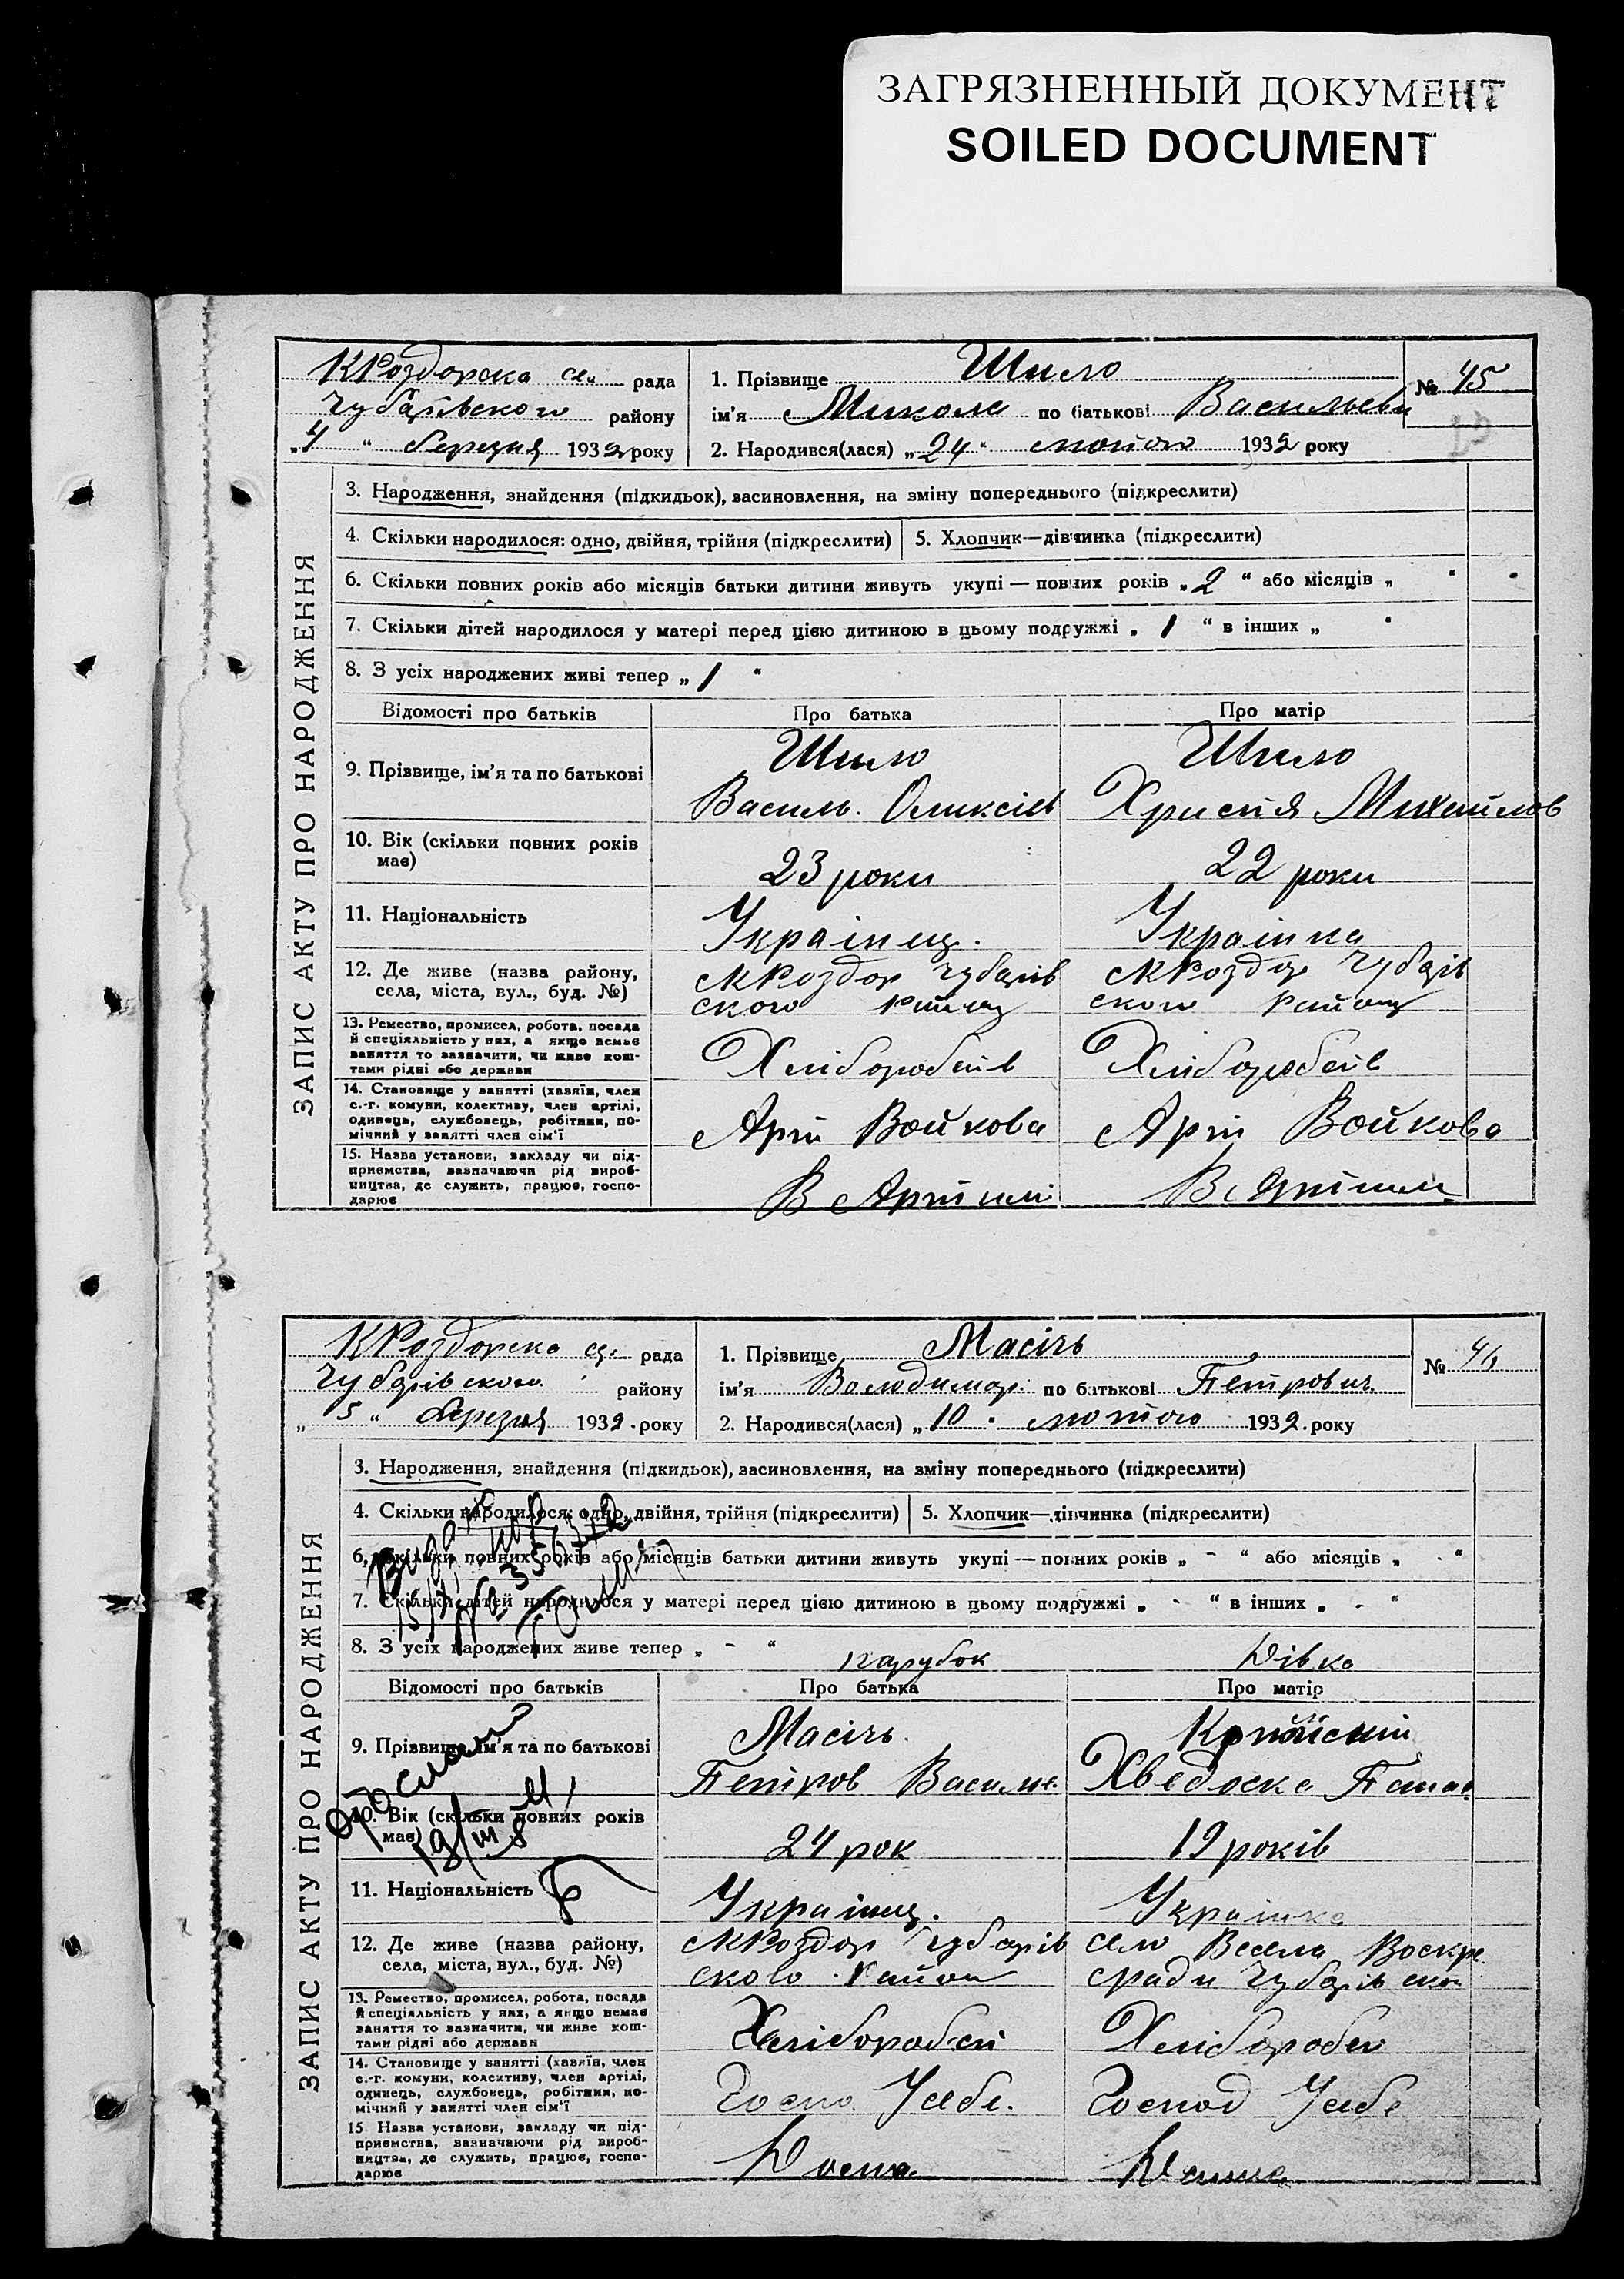 ЗАГРЯЗНЕННЫЙ ДОКУМЕНТ
SOILED DOCUMENT
ЗАПИС АКТУ ПРО НАРОДЖЕННЯ
КРоздорска се. рада
Чубарівского району
„4“ березня 1932 року
1. Прізвище Шило
ім'я Микола по батькові Васильев
№ 45
2. Народився(лася) „24“ лютого 1932 року
3. Народження, знайдення (підкидьок), засиновлення, на зміну попереднього (підкреслити)
4. Скільки народилося: одно, двійня, трійня (підкреслити) 5. Хлопчик—дівчинка (підкреслити)
6. Скільки повних років або місяців батьки дитини живуть укупі — повних років „2“ або місяців „ “
7. Скільки дітей народилося у матері перед цією дитиною в цьому подружжі „1“ в інших „ “
8. З усіх народжених живі тепер „1“
Відомості про батьків Про батька Про матір
9. Прізвище, ім'я та по батькові
Шило Шило
Василь. Олексієв Христя Михайлов
10. Вік (скільки повних років має) 23 роки 22 роки
11. Національність Українец. Українка
12. Де живе (назва району, села, міста, вул., буд. №)
с КРоздор Чубарів с КРоздор Чубарів
ского район ского район
13. Ремество, промисел, робота, посада й спеціяльність у них, а якщо немає заняття то зазначити, чи живе коштами рідні або держави
Хлібороб Хлібороб
14. Становище у занятті (хазяїн, член с.-г. комуни, колективу, член артілі, одинець, службовець, робітник, помічний у занятті член сім'ї
Арт Войкова Арт Войкова
15. Назва установи, закладу чи підприємства, зазначаючи рід виробництва, де служить, працює, господарює
В Артілі В Артілі
ЗАПИС АКТУ ПРО НАРОДЖЕННЯ
КРоздорска се. рада
Чубарівского району
„5“ березня 1932 року
1. Прізвище Масічь
ім'я Володимор. по батькові Петрович
№ 46
2. Народився(лася) „10“ лютого 1932 року
3. Народження, знайдення (підкидьок), засиновлення, на зміну попереднього (підкреслити)
4. Скільки народилося: одно, двійня, трійня (підкреслити) 5. Хлопчик—дівчинка (підкреслити)
6. Скільки повних років або місяців батьки дитини живуть укупі — повних років „ - “ або місяців „ - “
7. Скільки дітей народилося у матері перед цією дитиною в цьому подружжі „ - “ в інших „ - “
8. З усіх народжених живе тепер „ - “ парубок Дівка
Відомості про батьків Про батька Про матір
9. Прізвище, ім'я та по батькові
Масічь.
Петров Васили. Хведоска
10. Вік (скільки повних років має) 24 рок 19 років
11. Національність Українец. Українка
12. Де живе (назва району, села, міста, вул., буд. №)
с КРоздор Чубарів село Весела Воскре
ского район сради Чубарівског
13. Ремество, промисел, робота, посада й спеціяльність у них, а якщо немає заняття то зазначити, чи живе коштами рідні або держави
Хлібороб Хлібороб
14. Становище у занятті (хазяїн, член с.-г. комуни, колективу, член артілі, одинець, службовець, робітник, помічний у занятті член сім'ї
Госпо Усебе. Господ Усебе
15. Назва установи, закладу чи підприємства, зазначаючи рід виробництва, де служить, працює, господарює